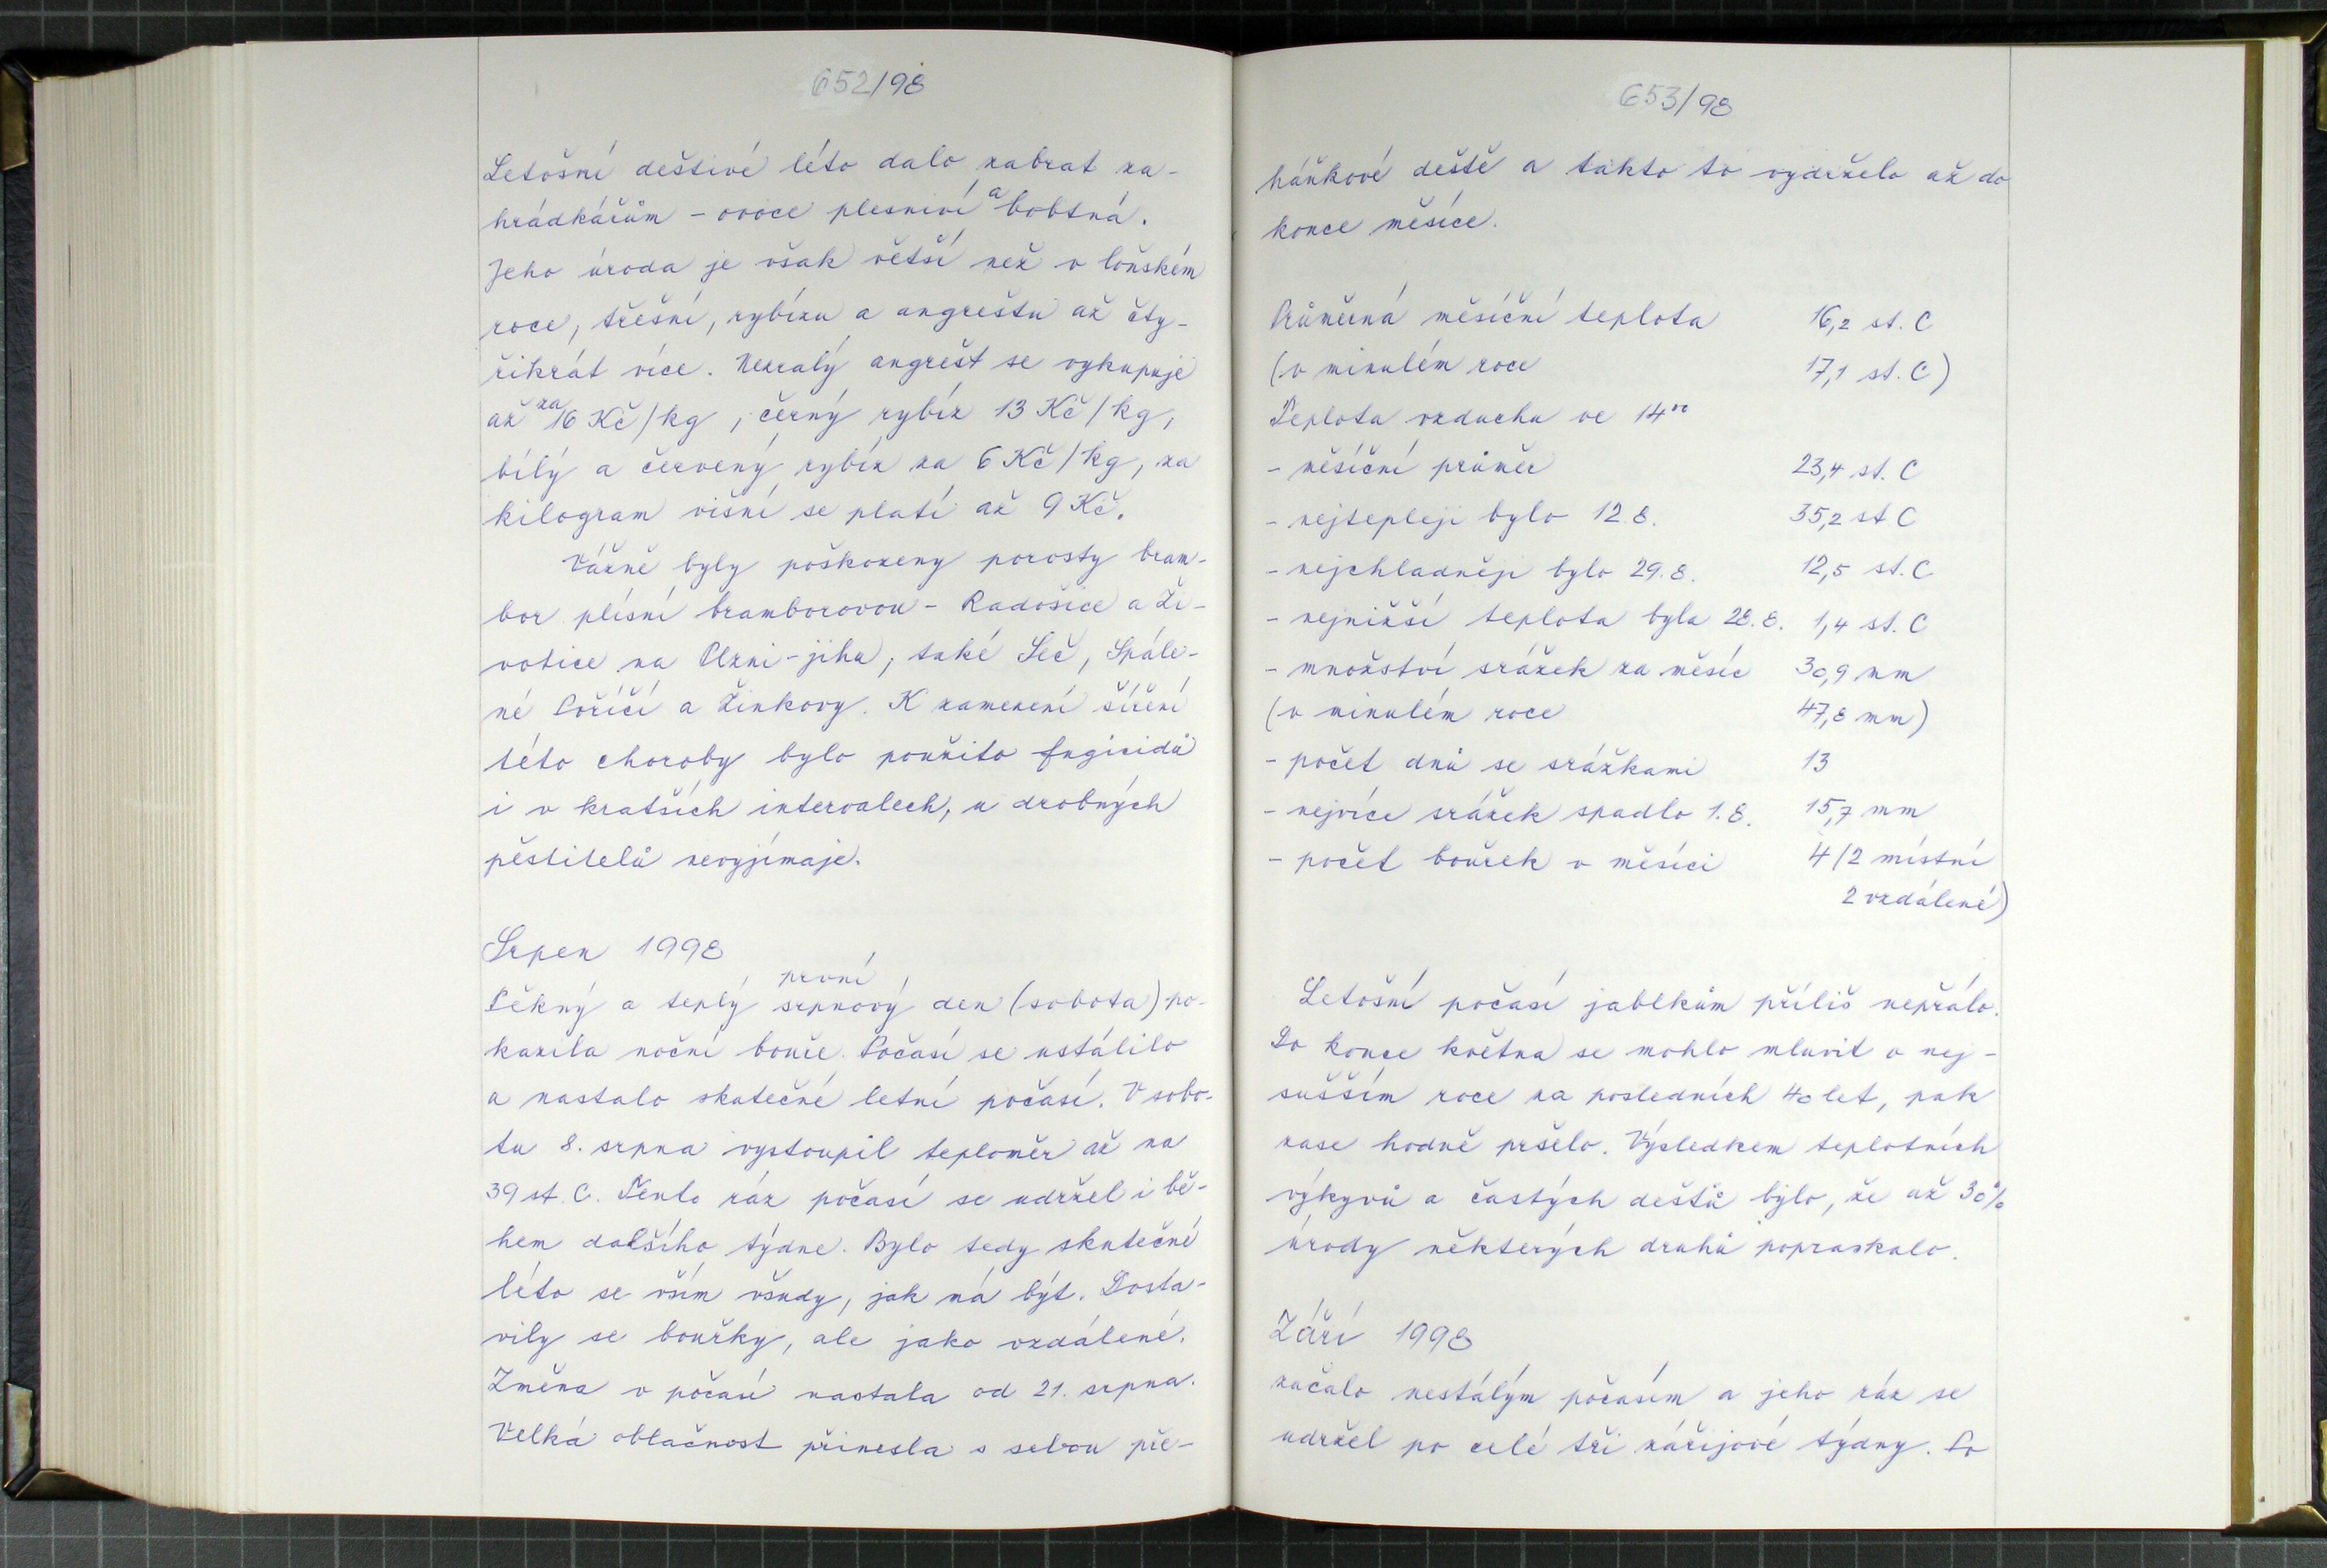 652/98
Letošní deštivé léto dalo zabrat za-
hrádkářům - ovoce plesniví a bobtná.
Jeho úroda je však větší než v loňském
roce, třešní, rybízu a angreštu až čty-
řikrát více. Nezralý angrešt se vykupuje
až za 16 Kč/kg, černý rybíz 13 Kč/kg,
bílý a červený rybíz za 6 Kč/kg, za
kilogram višní se platí až 9 Kč.
Vážně byly poškozeny porosty bram-
bor plísní bramborovou - Radošice a Ži-
votice na Plzni-jihu, také Seč, Spále-
né Poříčí a Žinkovy. K zamezení šíření
této choroby bylo použito fugicidů
i v kratších intervalech, u drobných
pěstitelů nevyjímaje.
Srpen 1998
Pěkný a teplý první srpnový den (sobota) po-
kazila noční bouře. Počasí se ustálilo
a nastalo skutečné letní počasí. V sobo-
tu 8. srpna vystoupil teploměr až na
39 st. C. Tento ráz počasí se udržel i bě-
hem dalšího týdne. Bylo tedy skutečné
léto se vším všudy, jak má být. Dosta-
vily se bouřky, ale jako vzdálené.
Změna v počasí nastala od 21. srpna.
Velká oblačnost přinesla s sebou pře-
653/98
háňkové deště a takto to vydrželo až do
konce měsíce.
Průměrná měsíční teplota 16,2 st. C
(v minulém roce 17,1 st. C)
Teplota vzduchu ve 14⁰⁰
- měsíční průměr 23,4 st. C
- nejtepleji bylo 12.8. 35,2 st C
- nejchladněji bylo 29.8. 12,5 st. C
- nejnižší teplota byla 28.8. 1,4 st. C
- množství srážek za měsíc 30,9 mm
(v minulém roce 47,8 mm)
- počet dnů se srážkami 13
- nejvíce srážek spadlo 1.8. 15,7 mm
- počet bouřek v měsíci 4 (2 místní
2 vzdálené)
Letošní počasí jablkům příliš nepřálo.
Do konce května se mohlo mluvit o nej-
sušším roce za posledních 40 let, pak
zase hodně pršelo. Výsledkem teplotních
výkyvů a častých dešťů bylo, že až 30%
úrody některých druhů popraskalo.
Září 1998
začalo nestálým počasím a jeho ráz se
udržel po celé tři zářijové týdny. Po